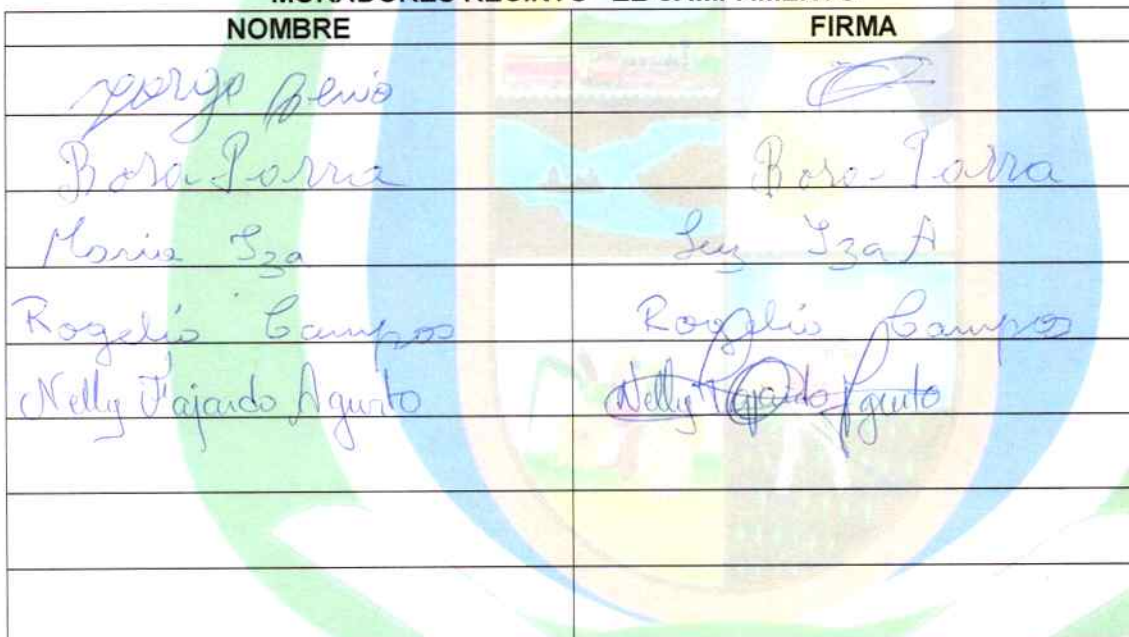 NOMBRE FIRMA
Jorge
Rosa Parra Rosa Parra
Maria Iza Luz Iza A
Rogelio Campos Rogelio Campos
Nelly Fajardo Agurto Nelly Fajardo Agurto